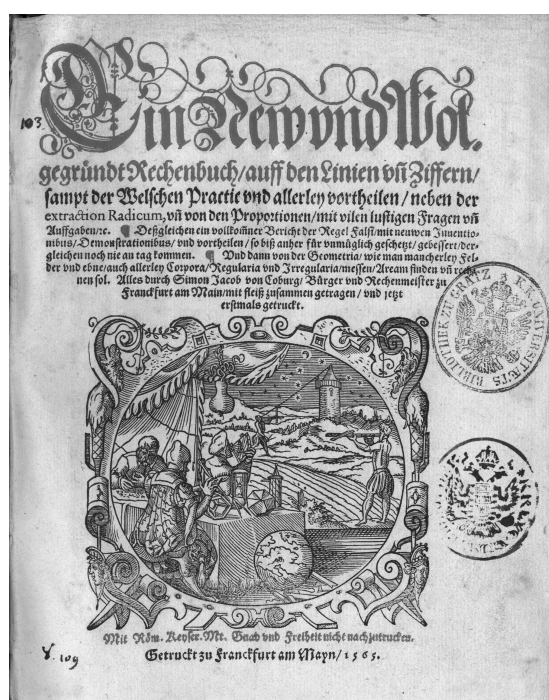 103
Ein New vnd Wol.
gegründt Rechenbuch/ auff den Linien vn̄ Ziffern/
sampt der Welschen Practic vnd allerley vortheilen/ neben der
extraction Radicum, vn̄ von den Proportionen/ mit vilen lustigen Fragen vn̄
Auffgaben/ ꝛc. ¶ Deßgleichen ein vollkom̄ner Bericht der Regel Falsi/ mit neuwen Inuentio-
nibus/ Demonstrationibus/ vnd vortheilen/ so biß anher für vnmüglich geschetzt/ gebessert/ der-
gleichen noch nie an tag kommen. ¶ Vnd dann von der Geometria/ wie man mancherley Fel-
der vnd ebne/ auch allerley Corpora/ Regularia vnd Irregularia/ messen/ Aream finden vn̄ rech-
nen sol. Alles durch Simon Jacob von Coburg/ Bürger vnd Rechenmeister zu
Franckfurt am Main/ mit fleiß zusammen getragen/ vnd jetzt
erstmals getruckt.
BIBLIOTHEK ZU GRATZ
Mit Röm. Keyser. Mt. Gnad vnd Freiheit nicht nachzutrucken.
Getruckt zu Franckfurt am Mayn/ 1565.
V. 109